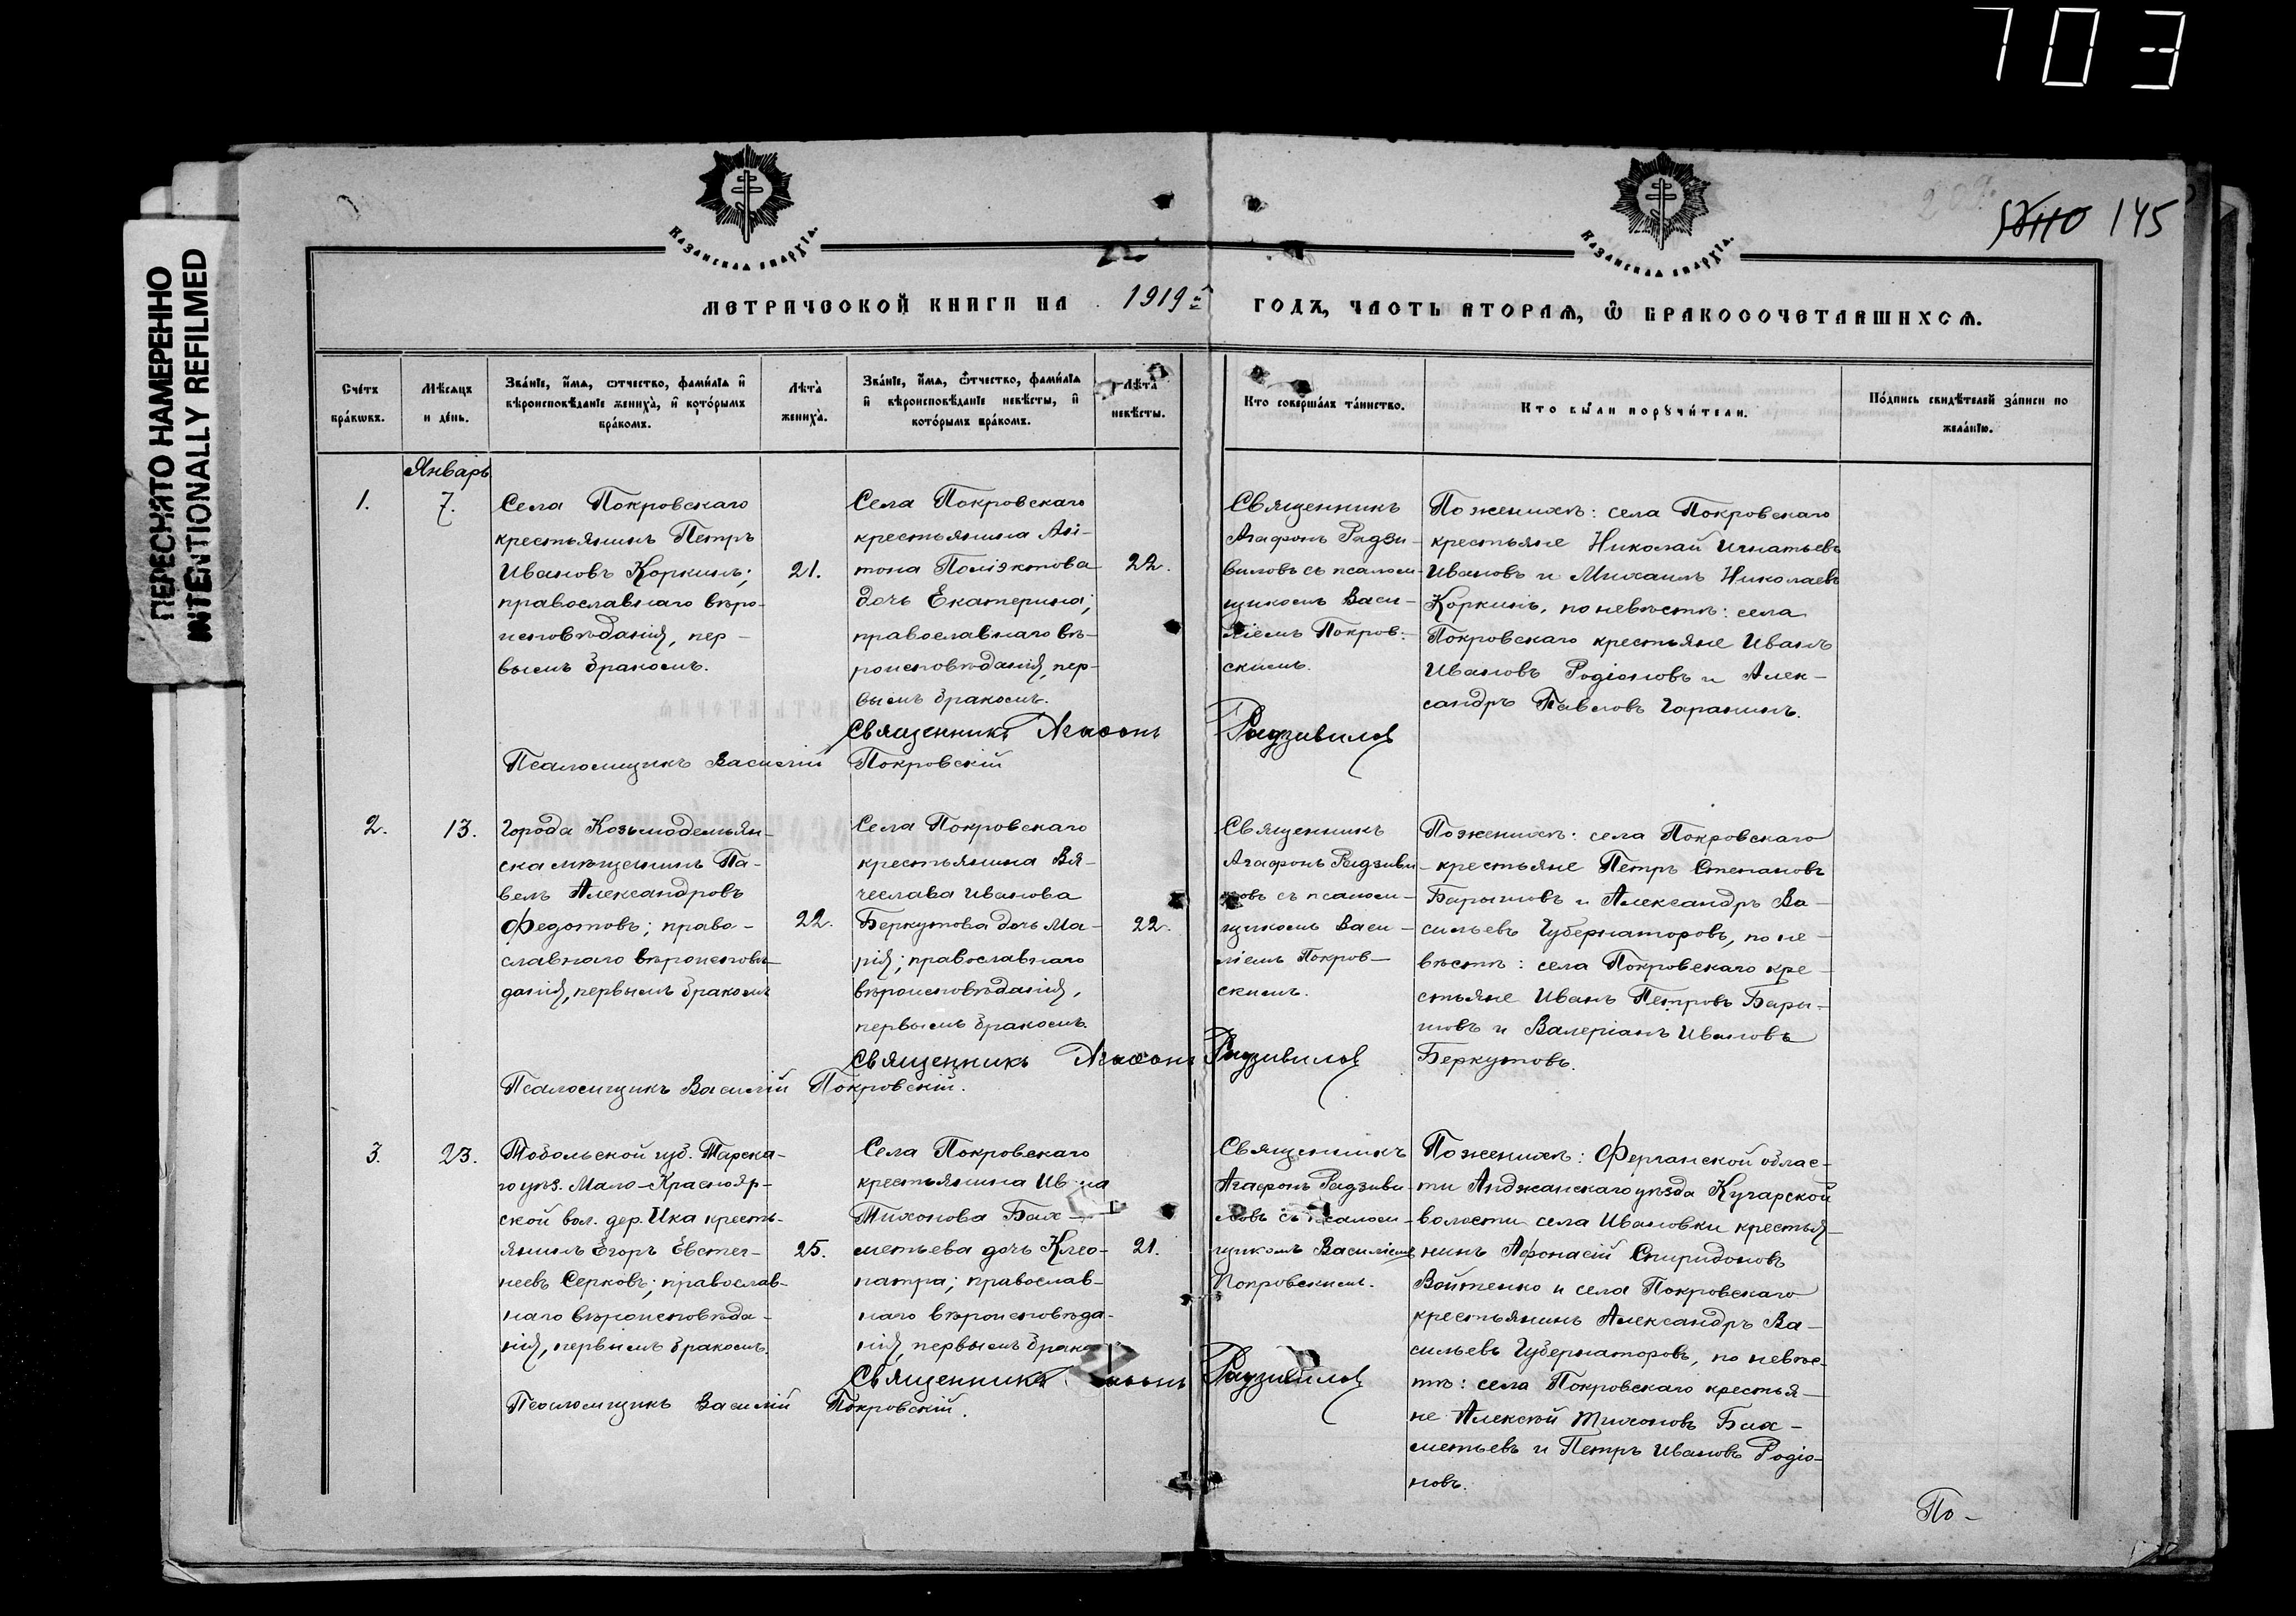 703
ПЕРЕСНЯТО НАМЕРЕННО
INTENTIONALLY REFILMED
КАЗАНСКАЯ ЕПАРХІЯ.
КАЗАНСКАЯ ЕПАРХІЯ.
145
МЕТРИЧЕСКОЙ КНИГИ НА 1919й ГОДЪ, ЧАСТЬ ВТОРАѦ, Ѡ БРАКОСОЧЕТАВШИХСѦ.
Счетъ
браковъ.
Мѣсяцъ
и день.
Званіе, имя, отчество, фамилія и
вѣроисповѣданіе жениха, и которымъ
бракомъ.
Лѣта
жениха.
Званіе, имя, отчество, фамилія
и вѣроисповѣданіе невѣсты, и
которымъ бракомъ.
Лѣта
невѣсты.
Кто совершалъ таинство.
Кто были поручители.
Подпись свидѣтелей записи по
желанію.
Январь
1.
7.
Села Покровскаго
крестьянинъ Петръ
Ивановъ Коркинъ;
православнаго вѣро-
исповѣданія, пер-
вымъ бракомъ.
21.
Села Покровскаго
крестьянина
тона Поліектова
дочь Екатерина;
православнаго вѣ-
роисповѣданія, пер-
вымъ бракомъ.
22.
Священникъ
Агафонъ Радзи-
виловъ съ псалом-
щикомъ Васи-
ліемъ Покров-
скимъ.
По женихѣ: села Покровскаго
крестьяне Николай Игнатьевъ
Ивановъ и Михаилъ Николаевъ
Коркинъ, по невѣстѣ: села
Покровскаго крестьяне Иванъ
Ивановъ Родіоновъ и Алек-
сандръ Павловъ Гаранинъ.
Священникъ Агафонъ Радзивилов
Псаломщикъ Василій Покровскій
2.
13.
Города Козьмодемьян-
ска мѣщанинъ Па-
велъ Александровъ
Федотовъ; право-
славнаго вѣроисповѣ-
данія, первымъ бракомъ
22.
Села Покровскаго
крестьянина Вя-
чеслава Иванова
Беркутова дочь Ма-
рія; православнаго
вѣроисповѣданія,
первымъ бракомъ.
22.
Священникъ
Агафонъ Радзиви-
ловъ съ псалом-
щикомъ Васи-
ліемъ Покров-
скимъ.
По женихѣ: села Покровскаго
крестьяне Петръ Степановъ
Барышовъ и Александръ Ва-
сильевъ Губернаторовъ, по не-
вѣстѣ: села Покровскаго кре-
стьяне Иванъ Петровъ Бары-
шовъ и Валеріанъ Ивановъ
Беркутовъ.
Священникъ Агафонъ Радзивилов
Псаломщикъ Василій Покровскій.
3.
23.
Тобольской губ. Тарска-
го уѣз. Мало-Краснояр-
ской вол. дер. Ика кресть-
янинъ Егоръ Евстег-
неевъ Серковъ; православ-
наго вѣроисповѣда-
нія, первымъ бракомъ.
25.
Села Покровскаго
крестьянина Ивана
Тихонова Бах-
метьева дочь Клео-
патра; православ-
наго вѣроисповѣда-
нія, первымъ брако
21.
Священникъ
Агафонъ Радзиви-
ловъ съ псалом-
щикомъ Василіемъ
Покровскимъ.
По женихѣ: Ферганской облас-
ти Анджанскаго уѣзда Кугарской
волости села Ивановки крестья-
нинъ Афонасій Спиридоновъ
Войтенко и села Покровскаго
крестьянинъ Александръ Ва-
сильевъ Губернаторовъ, по невѣс-
тѣ: села Покровскаго крестья-
не Алексѣй Тихоновъ Бах-
метьевъ и Петръ Ивановъ Родіо-
новъ.
Священникъ Агафонъ Радзивилов
Псаломщикъ Василій Покровскій.
По-